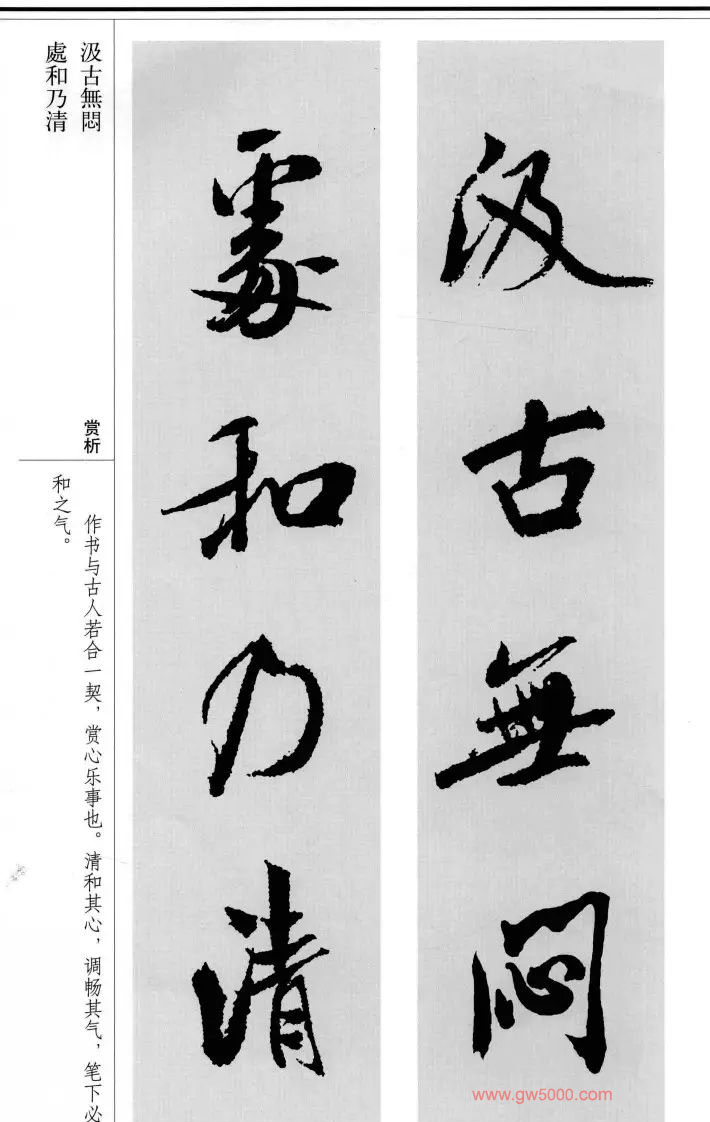 汲古無悶
處和乃清
汲古無悶
處和乃清
赏析
作书与古人若合一契，赏心乐事也。清和其心，调畅其气，笔下必
和之气。
www.gw5000.com